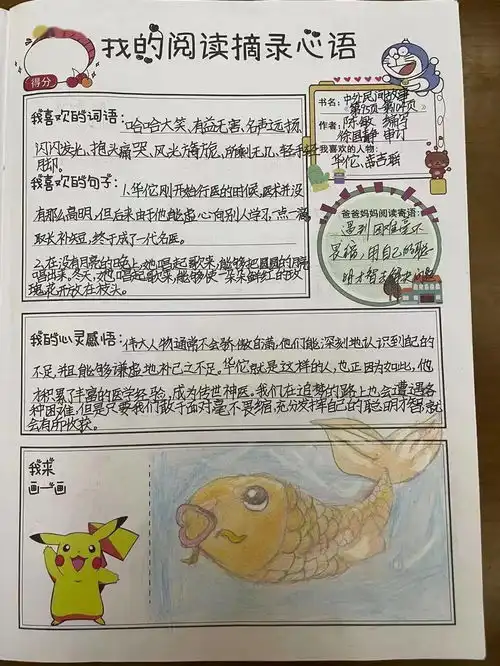 我的阅读摘录心语
得分
书名：中外民间故事
第75页-第104页
作者：陈敏 编写
审订
我喜欢的人物：
华佗、帝吉联
我喜欢的词语：哈哈大笑、有益无害、名声远扬、
闪闪发光、抱头痛哭、风光旖旎、所剩无几、轻手
我喜欢的句子：1.华佗刚开始行医的时候，医术并没
有那么高明，但后来由于他能虚心向别人学习一点一滴，
取长补短，终于成了一代名医。
2.在没有月亮的晚上，她唱起歌来，能够把圆圆的月亮
唱出来，冬天，她唱起歌来，能够使一朵朵鲜红的玫
瑰花开放在枝头。
爸爸妈妈阅读寄语：
遇到困难受不
畏缩，用自己的聪
明才智去解决问题
我的心灵感悟：伟大人物通常不会骄傲自满，他们能深刻地认识到自己的
不足，且能够谦虚地补己之不足。华佗就是这样的人，也正因为如此，他
才积累了丰富的医学经验，成为传世神医。我们在追梦的路上也会遭遇各
种困难，但是只要我们敢于面对毫不畏缩，充分发挥自己的聪明才智，就
会有所收获。
我来
画一画